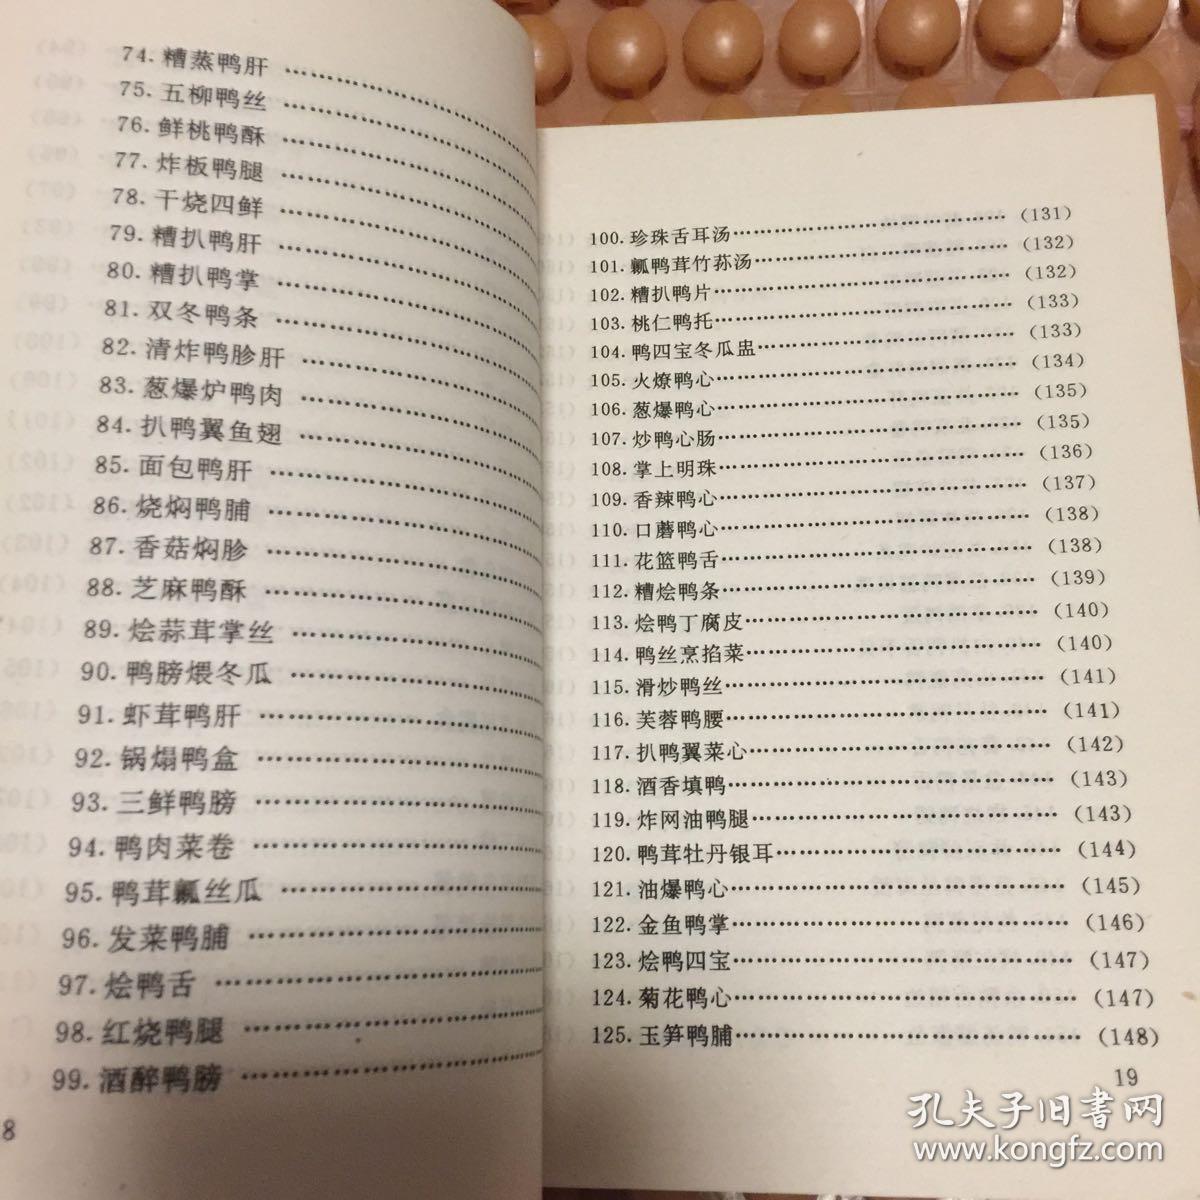 74. 糟蒸鸭肝 ……………………
75. 五柳鸭丝 ……………………
76. 鲜桃鸭酥 ……………………
77. 炸板鸭腿 ……………………
78. 干烧四鲜 ……………………
79. 糟扒鸭肝 ……………………
80. 糟扒鸭掌 ……………………
81. 双冬鸭条 ……………………
82. 清炸鸭胗肝 …………………
83. 葱爆炉鸭肉 …………………
84. 扒鸭翼鱼翅 …………………
85. 面包鸭肝 ……………………
86. 烧焖鸭脯 ……………………
87. 香菇焖胗 ……………………
88. 芝麻鸭酥 ……………………
89. 烩蒜茸掌丝 …………………
90. 鸭膀煨冬瓜 …………………
91. 虾茸鸭肝 ……………………
92. 锅塌鸭盒 ……………………
93. 三鲜鸭膀 ……………………
94. 鸭肉菜卷 ……………………
95. 鸭茸瓤丝瓜 …………………
96. 发菜鸭脯 ……………………
97. 烩鸭舌 ………………………
98. 红烧鸭腿 ……………………
99. 酒醉鸭膀 ……………………
8
100. 珍珠舌耳汤……………………………(131)
101. 瓤鸭茸竹荪汤…………………………(132)
102. 糟扒鸭片………………………………(132)
103. 桃仁鸭托………………………………(133)
104. 鸭四宝冬瓜盅…………………………(133)
105. 火燎鸭心………………………………(134)
106. 葱爆鸭心………………………………(135)
107. 炒鸭心肠………………………………(135)
108. 掌上明珠………………………………(136)
109. 香辣鸭心………………………………(137)
110. 口蘑鸭心………………………………(138)
111. 花篮鸭舌………………………………(138)
112. 糟烩鸭条………………………………(139)
113. 烩鸭丁腐皮……………………………(140)
114. 鸭丝烹掐菜……………………………(140)
115. 滑炒鸭丝………………………………(141)
116. 芙蓉鸭腰………………………………(141)
117. 扒鸭翼菜心……………………………(142)
118. 酒香填鸭………………………………(143)
119. 炸网油鸭腿……………………………(143)
120. 鸭茸牡丹银耳…………………………(144)
121. 油爆鸭心………………………………(145)
122. 金鱼鸭掌………………………………(146)
123. 烩鸭四宝………………………………(147)
124. 菊花鸭心………………………………(147)
125. 玉笋鸭脯………………………………(148)
19
孔夫子旧书网
www.kongfz.com